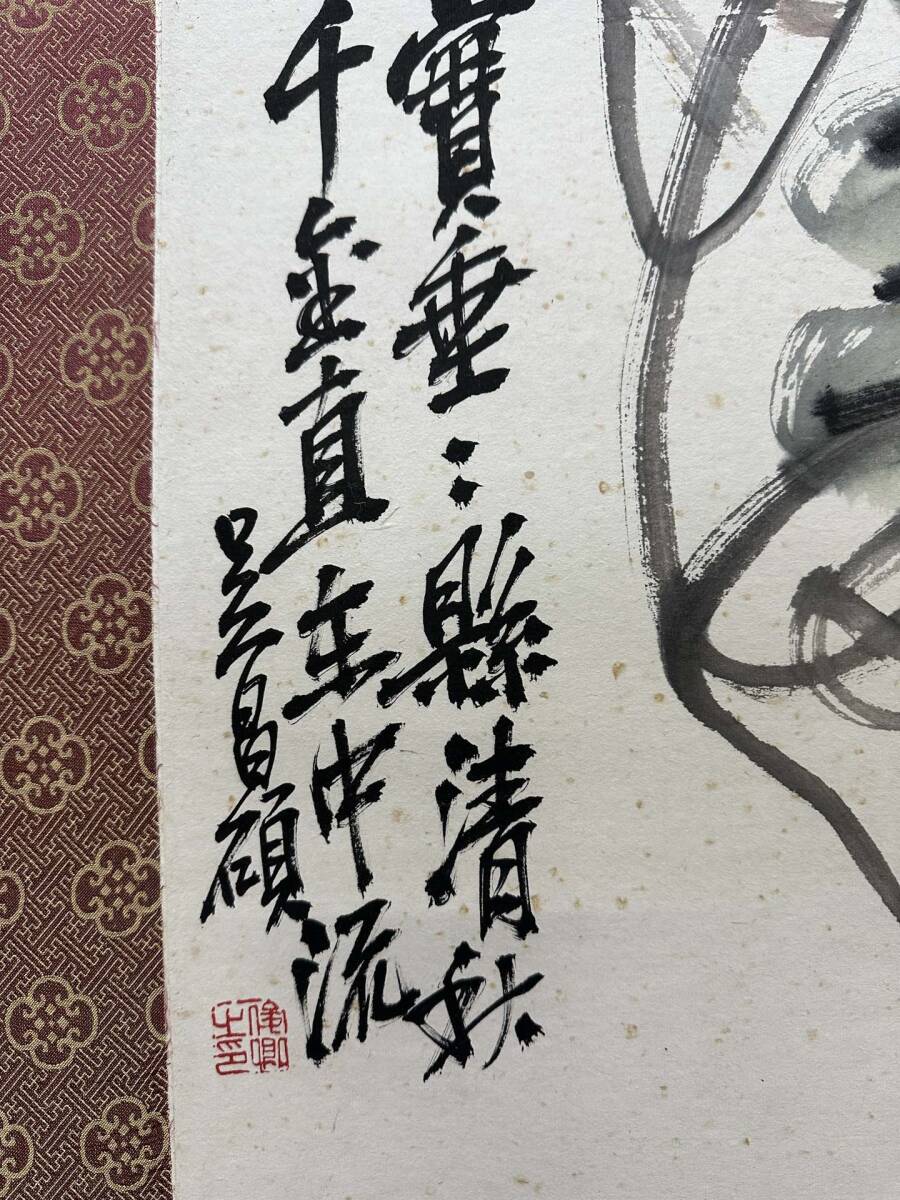 實垂〻縣清秋
千金直在中流
吳昌碩
俊卿之印